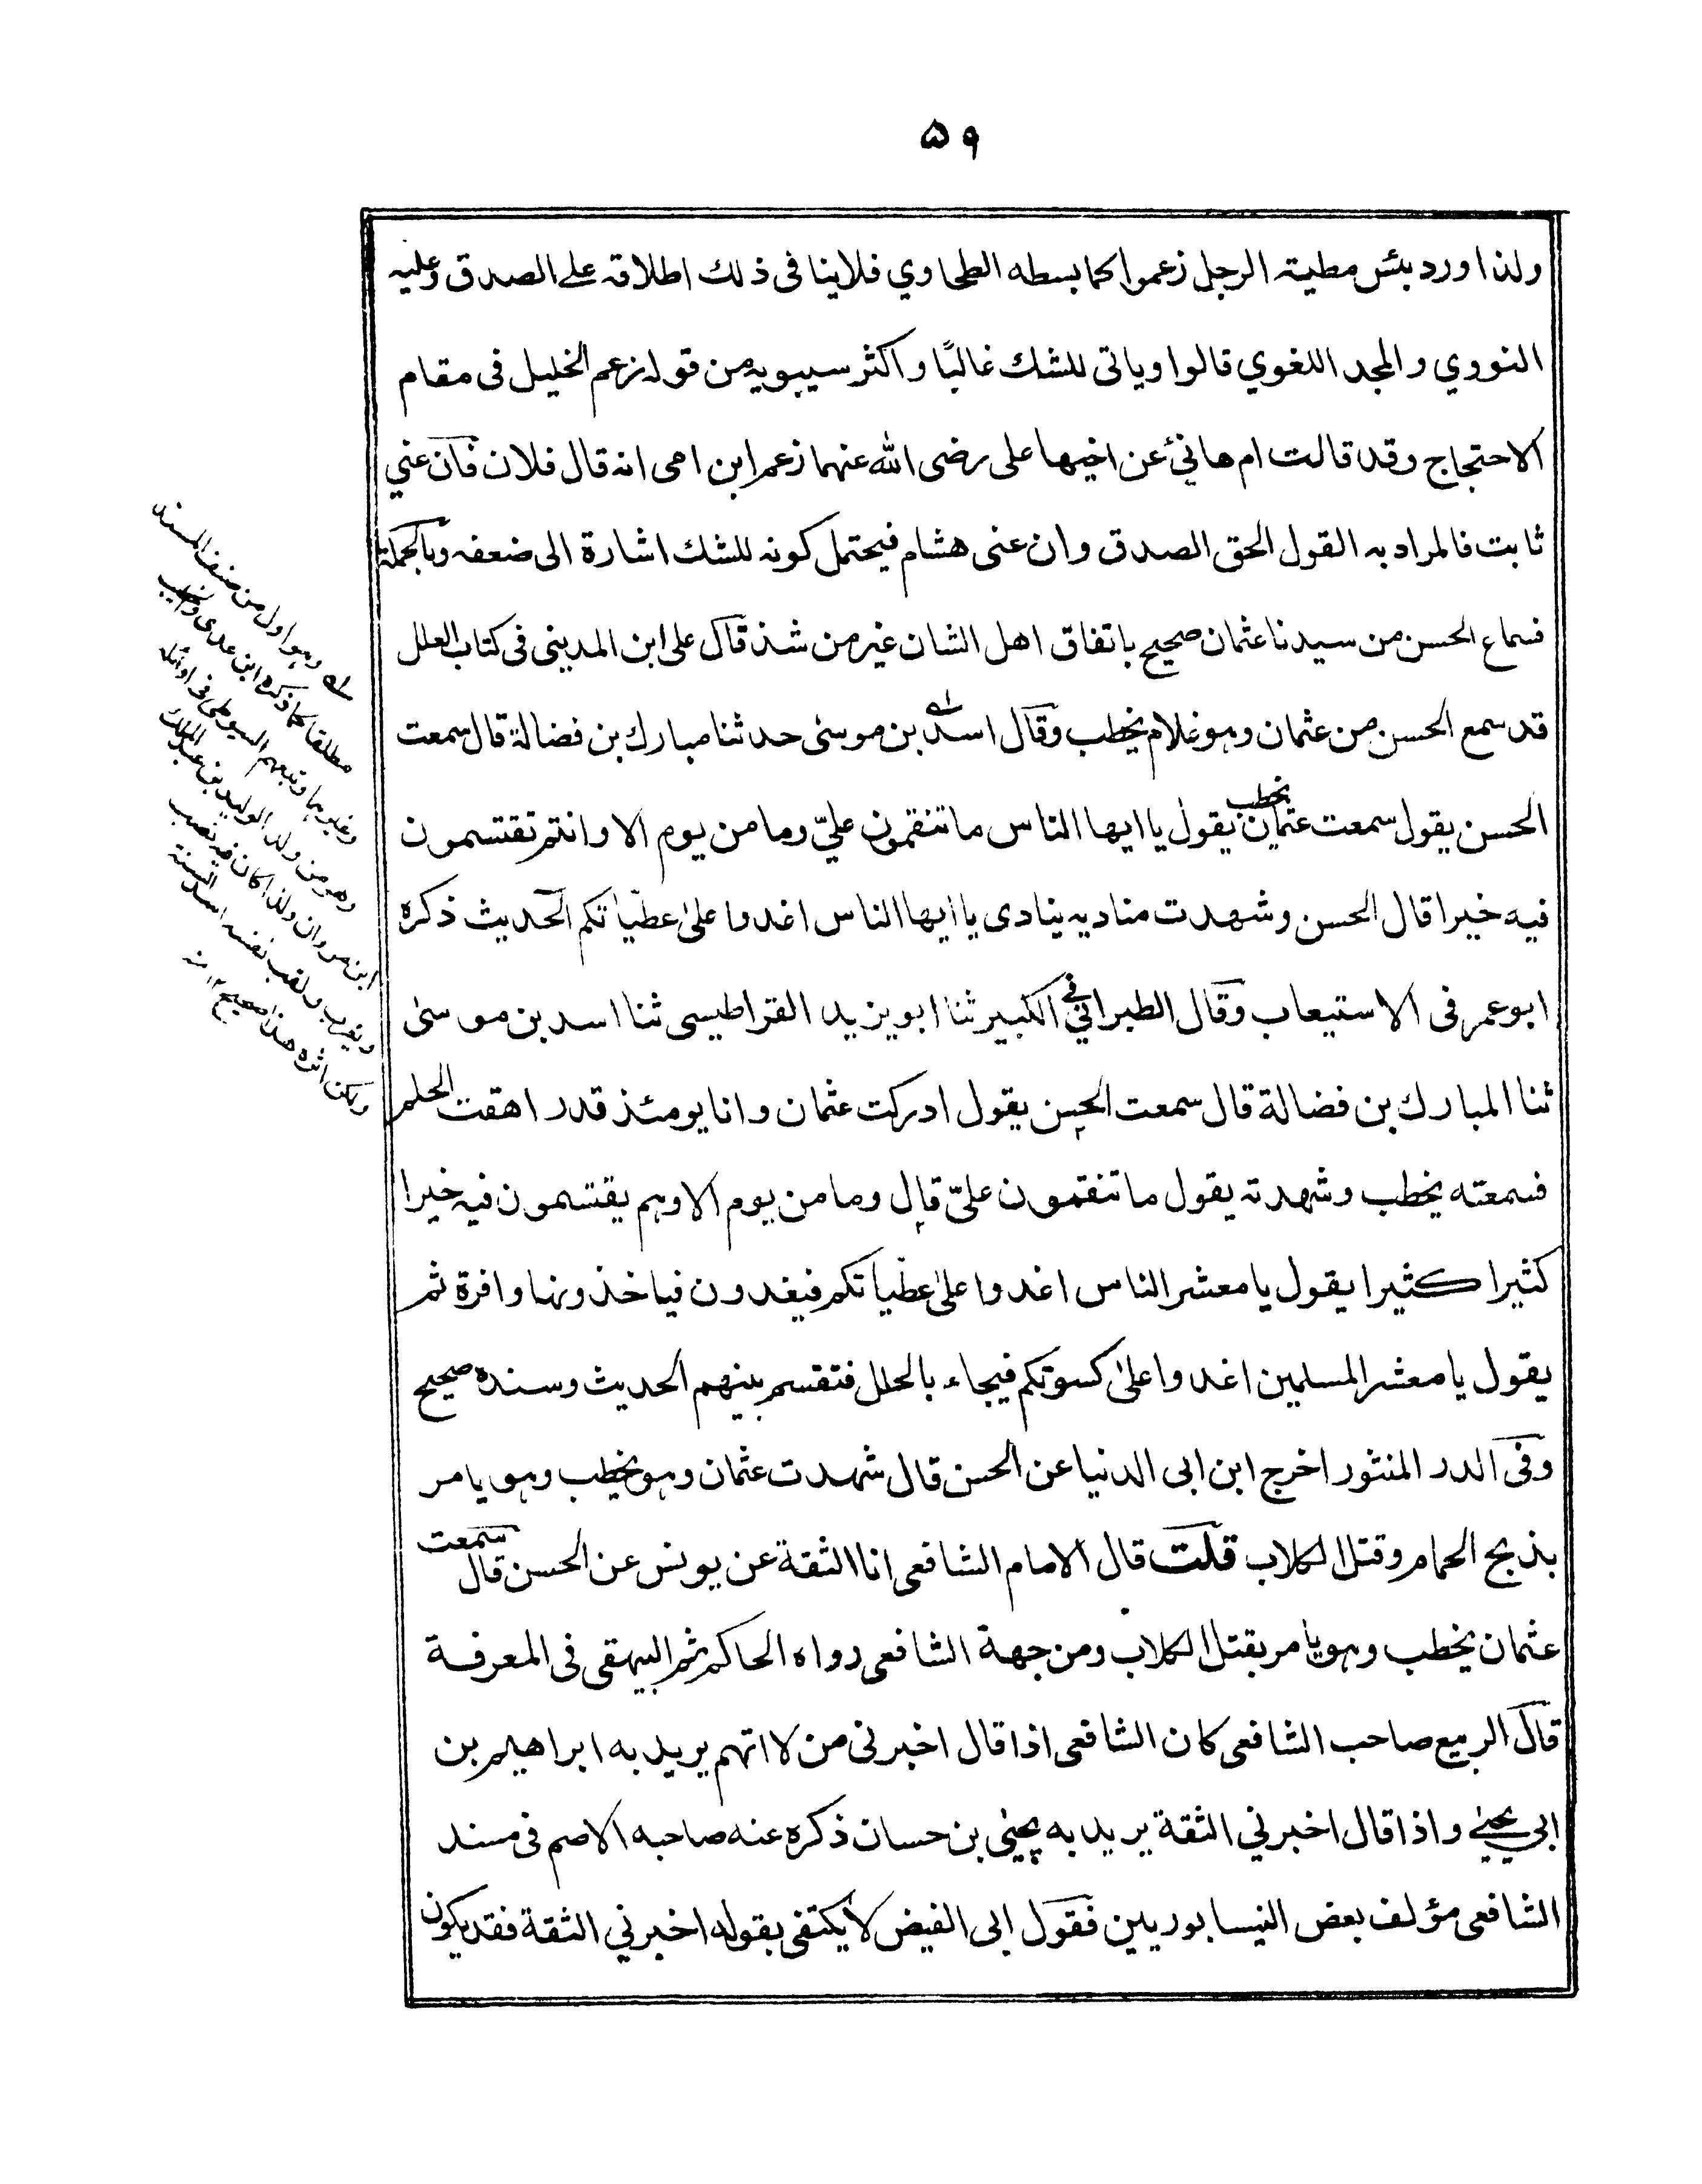 ۵۹
ولذا ورد بئس مطية الرجل زعموا كما بسطه الطحاوي فلا ينافى ذلك اطلاقه على الصدق وعليه
النووي والمجد اللغوي قالوا وياتى للشك غالبًا واكثر سيبويه من قوله زعم الخليل فى مقام
الاحتجاج وقد قالت ام هانئ عن اخيها على رضى الله عنهما زعم ابن امى انه قال فلان فان عني
ثابت فالمراد به القول الحق الصدق وان عنى هشام فيحتمل كونه للشك اشارة الى ضعفه وبالجملة
فسماع الحسن من سيدنا عثمان صحيح باتفاق اهل الشان غير من شذ قال على ابن المدينى فى كتاب العلل
قد سمع الحسن من عثمان وهو غلام يخطب وقال اسد بن موسىٰ حدثنا مبارك بن فضالة قال سمعت
الحسن يقول سمعت عثمان يخطب يقول يا ايها الناس ما تنقمون عليّ وما من يوم الا وانتم تقتسمون
فيه خيرا قال الحسن وشهدت مناديه ينادى يا ايها الناس اغدوا علىٰ عطياتكم الحديث ذكره
ابو عمر فى الاستيعاب وقال الطبراني في الكبير ثنا ابو يزيد القراطيسى ثنا اسد بن موسىٰ
ثنا المبارك بن فضالة قال سمعت الحسن يقول ادركت عثمان وانا يومئذ قد راهقت الحلم
فسمعته يخطب وشهدته يقول ما تنقمون علىّ قال وما من يوم الا وهم يقتسمون فيه خيرا
كثيرا كثيرا يقول يا معشر الناس اغدوا علىٰ عطياتكم فيغدون فياخذونها وافرة ثم
يقول يا معشر المسلمين اغدوا علىٰ كسوتكم فيجاء بالحلل فتقسم بينهم الحديث وسنده صحيح
وفى الدر المنثور اخرج ابن ابى الدنيا عن الحسن قال شهدت عثمان وهو يخطب وهو يامر
بذبح الحمام وقتل الكلاب قلت قال الامام الشافعى انا الثقة عن يونس عن الحسن قال سمعت
عثمان يخطب وهو يامر بقتل الكلاب ومن جهة الشافعى رواه الحاكم ثم البيهقى فى المعرفة
قال الربيع صاحب الشافعى كان الشافعى اذا قال اخبرنى من لا اتهم يريد به ابراهيم بن
ابي يحيىٰ واذا قال اخبرني الثقة يريد به يحيىٰ بن حسان ذكره عنه صاحبه الاصم فى مسند
الشافعى مؤلف بعض النيسابوريين فقول ابى الفيض لا يكتفى بقوله اخبرني الثقة فقد يكون
له وهو اول من صنف المسند
مطلقا كما ذكره ابن عدى والخطيب
وغيرهما وتبعهم السيوطى فى اوائله
وهو من ولد الوليد بن عبد الملك
ابن مروان ولذا كان فيه نصب
ويغرب ولقب نفسه اسد السنة
ولكن اثره هذا صحيح ۱۲ منه